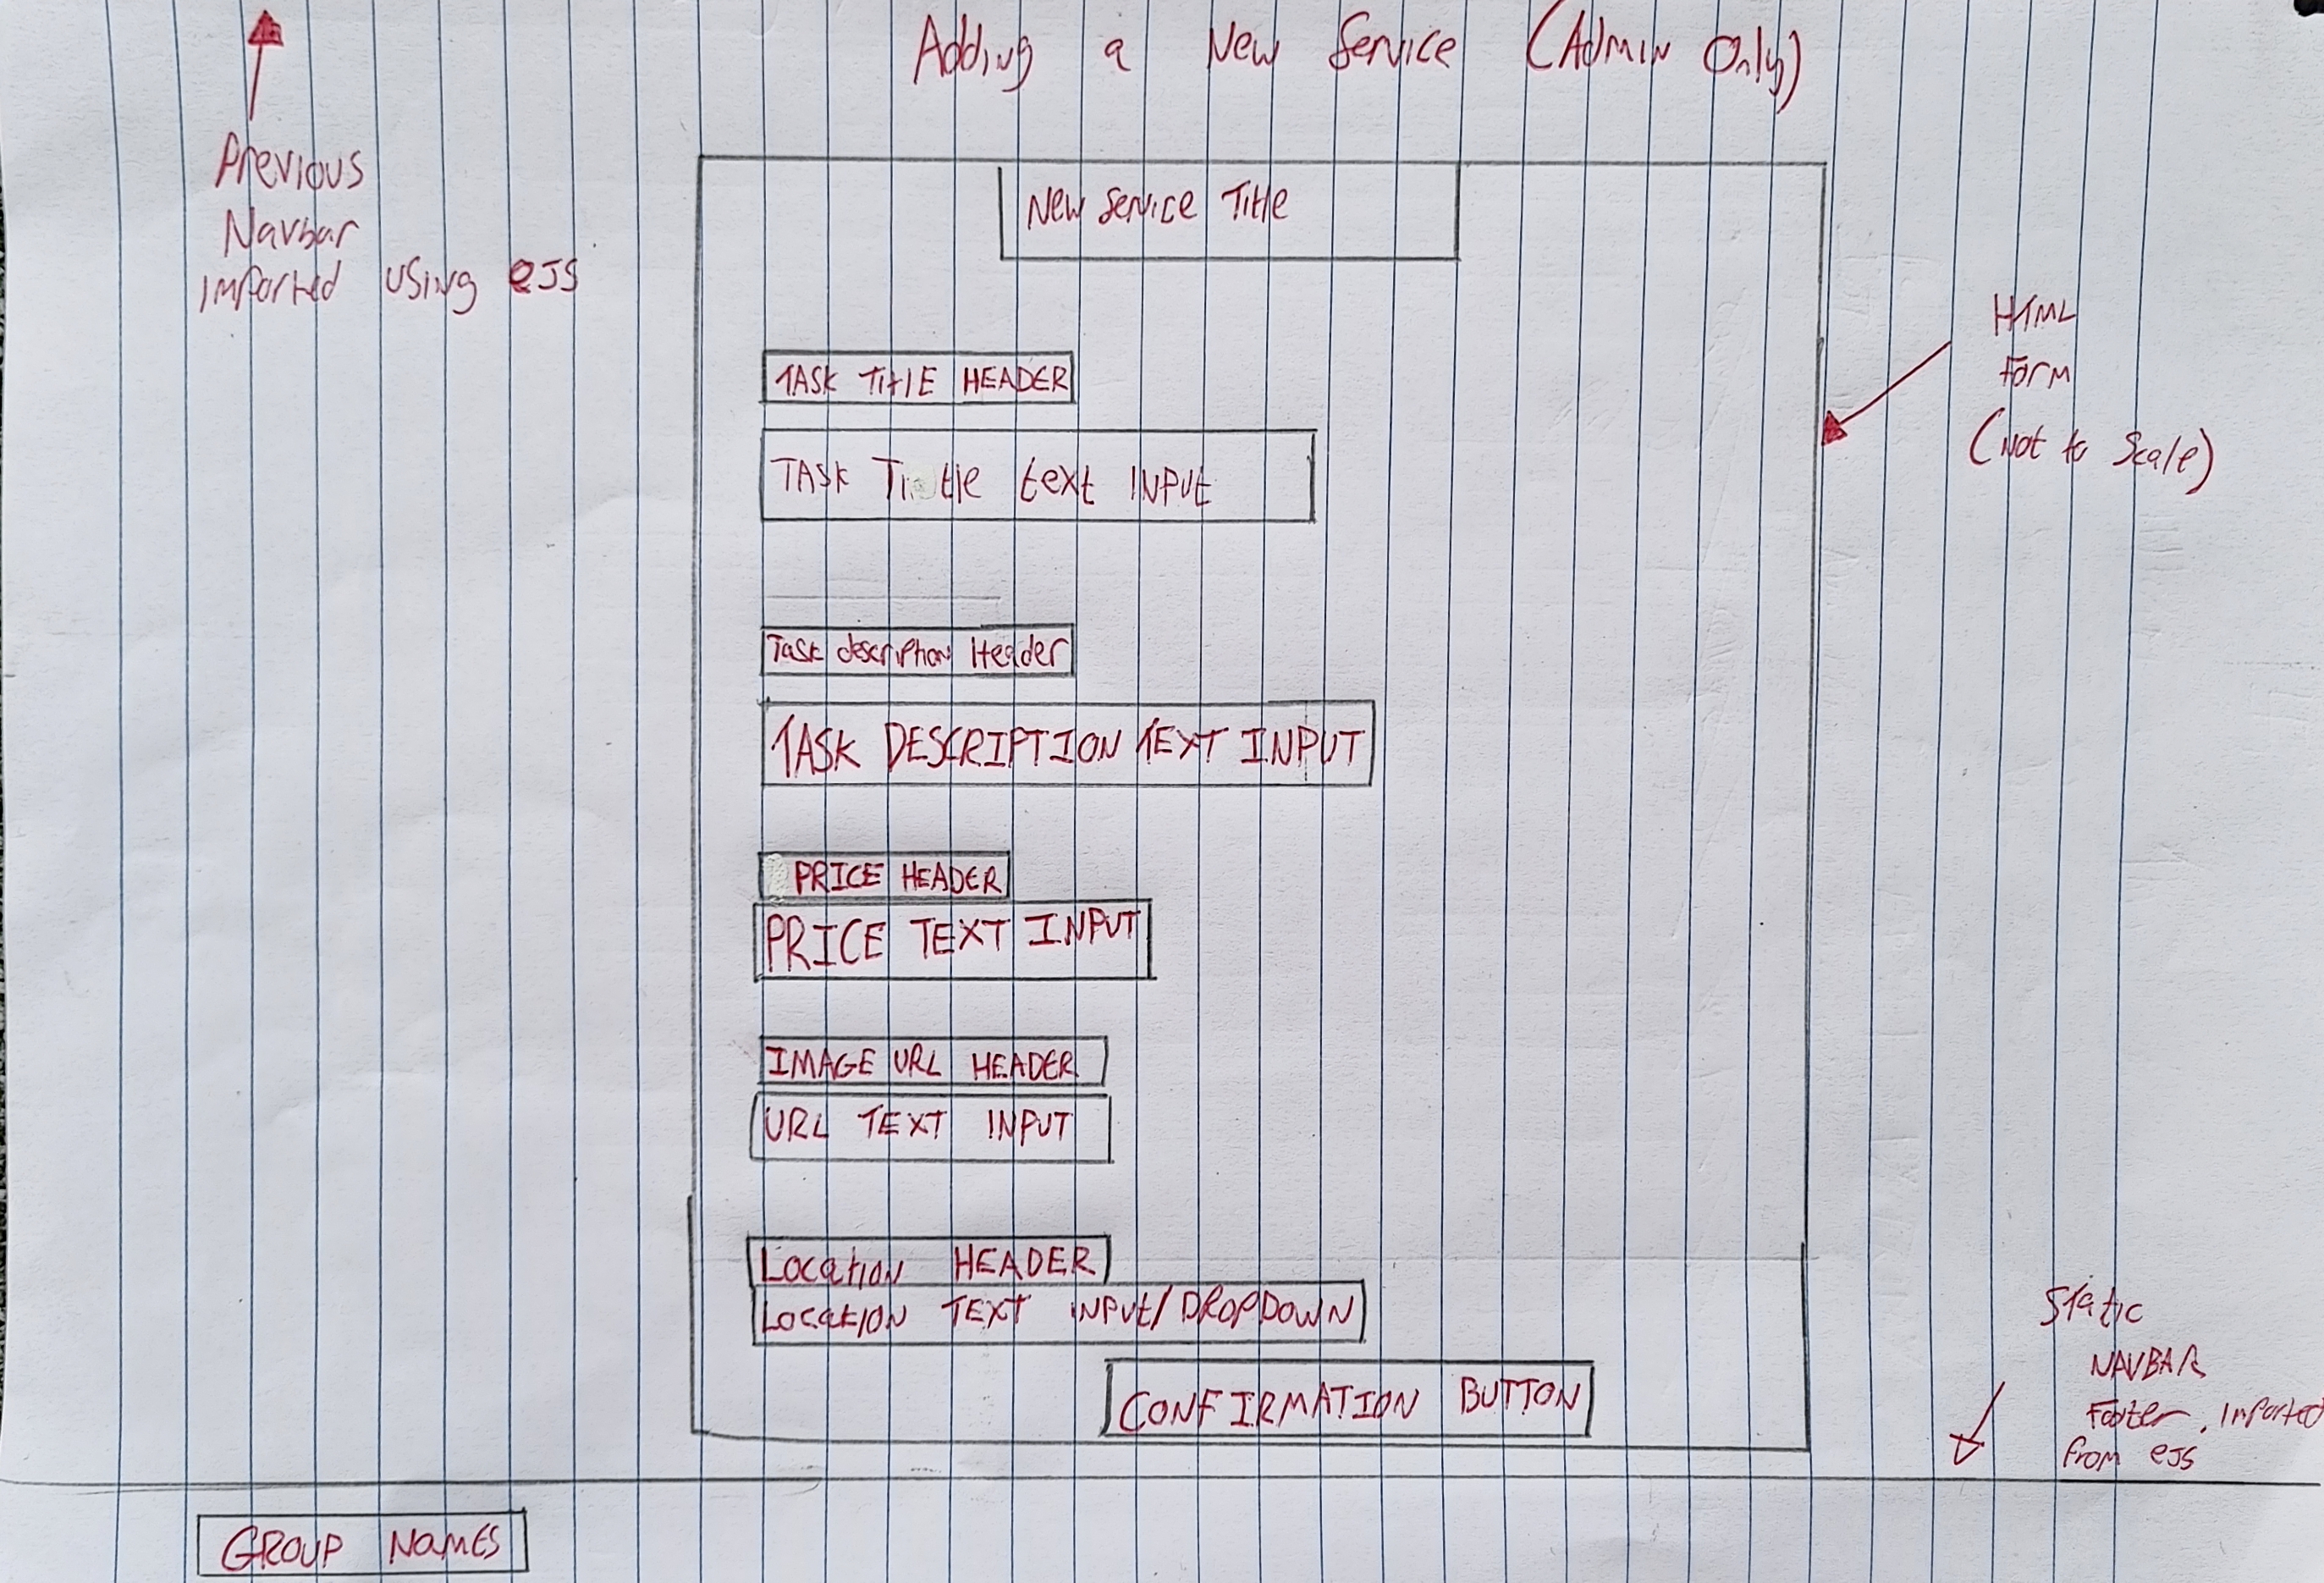 Adding a New Service (Admin Only)
Previous
Navbar
imported using eJS
New Service Title
HTML
Form
(Not to Scale)
TASK TITLE HEADER
TASK Title text INPUT
Task description Header
TASK DESCRIPTION TEXT INPUT
PRICE HEADER
PRICE TEXT INPUT
IMAGE URL HEADER
URL TEXT INPUT
Location HEADER
Location TEXT INPUT/DROPDOWN
CONFIRMATION BUTTON
Static
NAVBAR
Footer, Imported
from eJS
GROUP NAMES